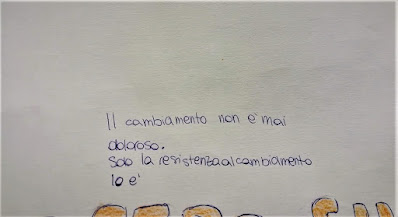 Il cambiamento non e' mai
doloroso.
Solo la resistenza al cambiamento
lo e'